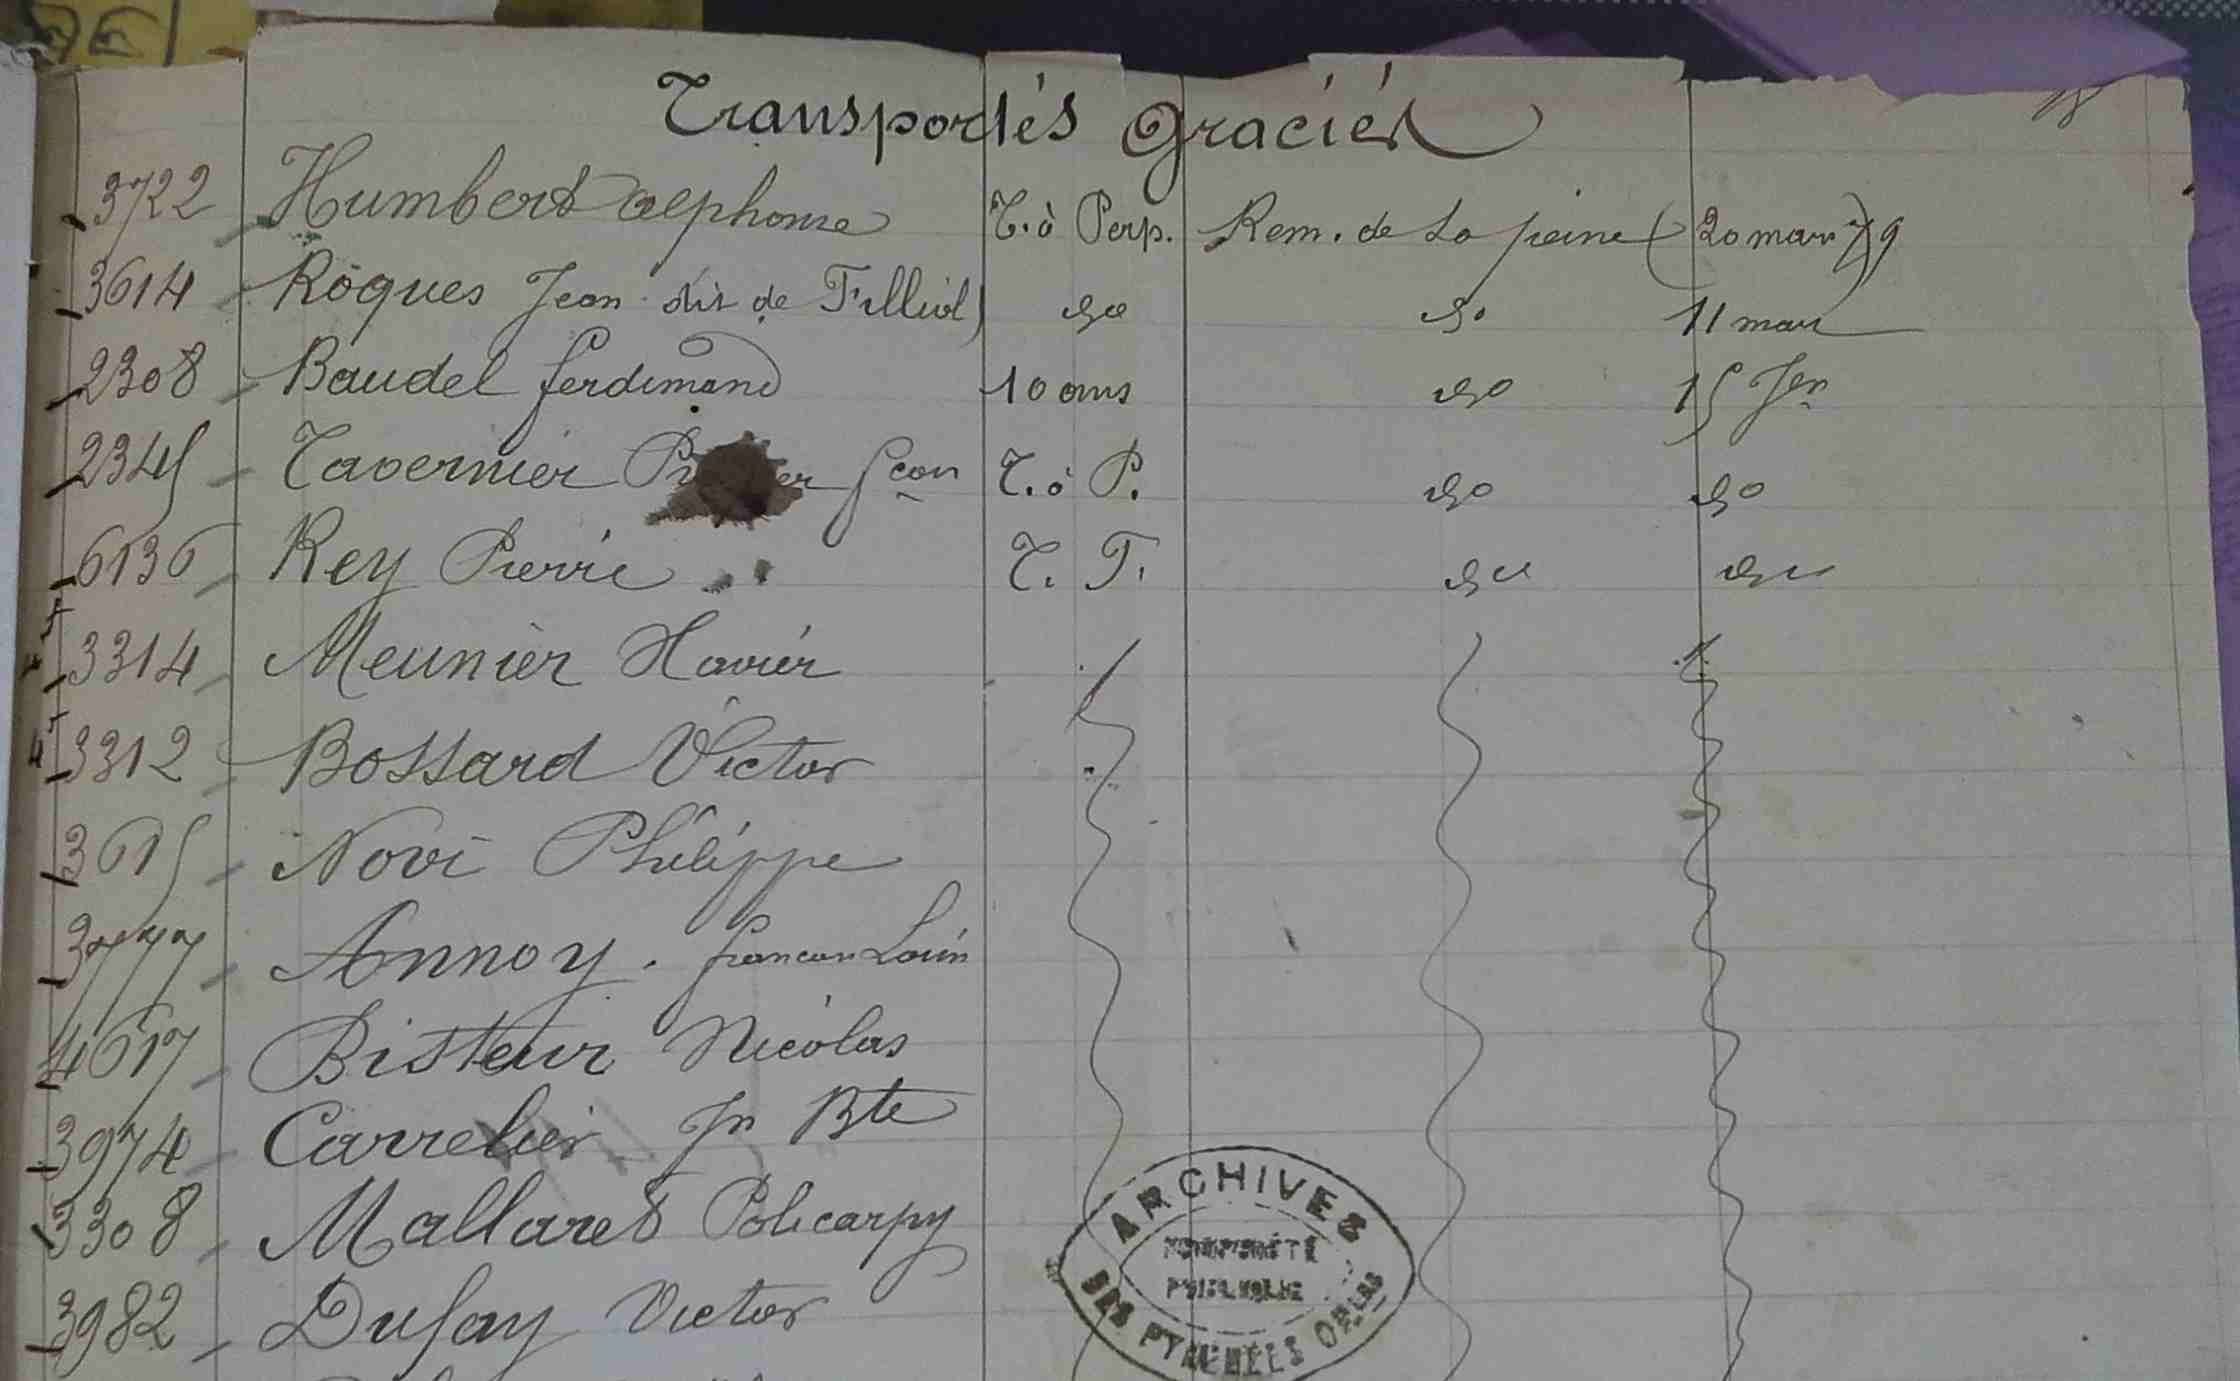 Transportés Graciés
18
3722 Humbert Alphonse T. à Perp. Rem. de la peine (20 mars 79)
3614 Roques Jean dit de Filliol) do do 11 mars
2308 Baudel ferdinand 10 ans do 15 Jer
2345 Tavernier Jean T. à P. do do
6136 Rey Pierre T. T. do do
3314 Meunier Xavier
3312 Bossard Victor
3615 Novi Philippe
3777 Annoy. francois Louis
4617 Bisteur Nicolas
3974 Carrelier Jn Bte
3308 Mallaret Policarpy
3982 Dufay Victor
ARCHIVES
PROPRIÉTÉ
PUBLIQUE
DES PYRÉNÉES ORLES